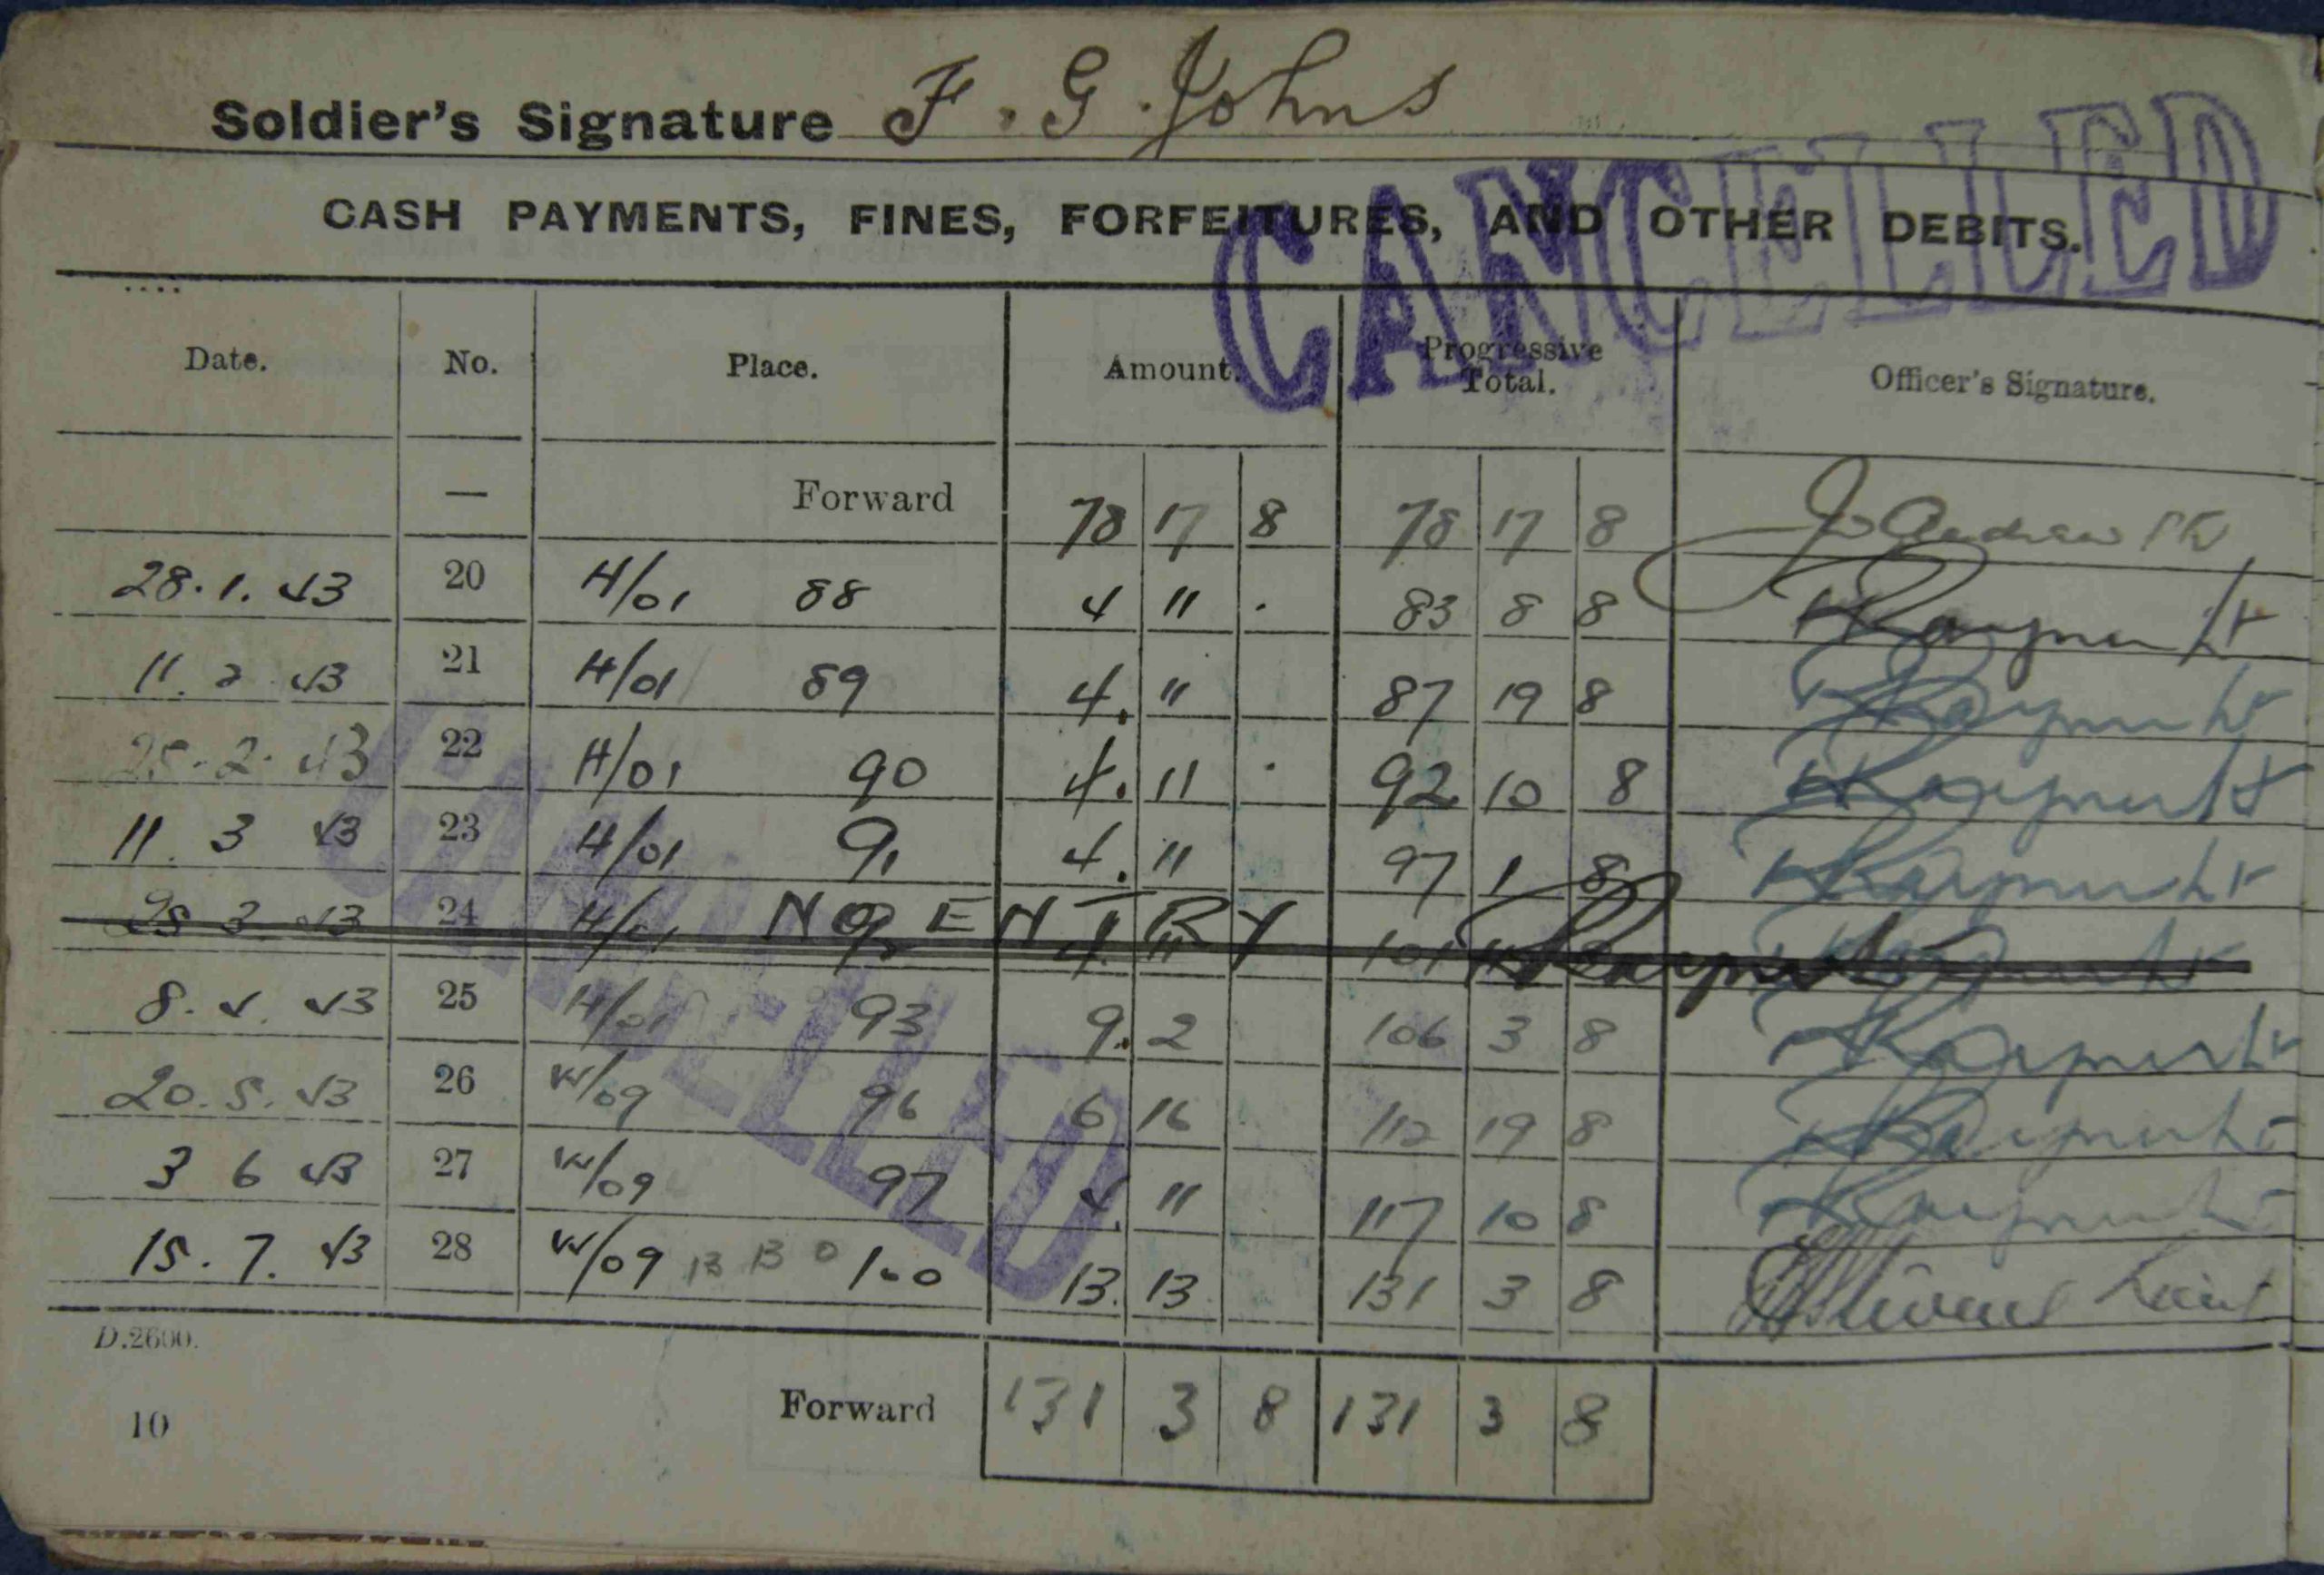 Soldier's Signature F. G. Johns
CANCELLED
CASH PAYMENTS, FINES, FORFEITURES, AND OTHER DEBITS.
Date. No. Place. Amount. Progressive Total. Officer's Signature.
— Forward 78 17 8 78 17 8
28.1.43 20 H/01 88 4 11 . 83 8 8 Rayner Lt
11.2.43 21 H/01 89 4. 11 87 19 8 Rayner Lt
25.2.43 22 H/01 90 4. 11 . 92 10 8 Rayner Lt
11.3 43 23 H/01 91 4. 11 97 1 8 Rayner Lt
25 3 43 24 H/01 92 NO ENTRY 4. 11 101
8.4.43 25 H/01 93 9. 2 106 3 8 Rayner Lt
20.5.43 26 W/09 96 6 16 112 19 8 Rayner Lt
3 6 43 27 W/09 97 4. 11 117 10 8 Rayner Lt
15.7.43 28 W/09 100 13. 13 131 3 8
CANCELLED
D.2600.
Forward 131 3 8 131 3 8
10